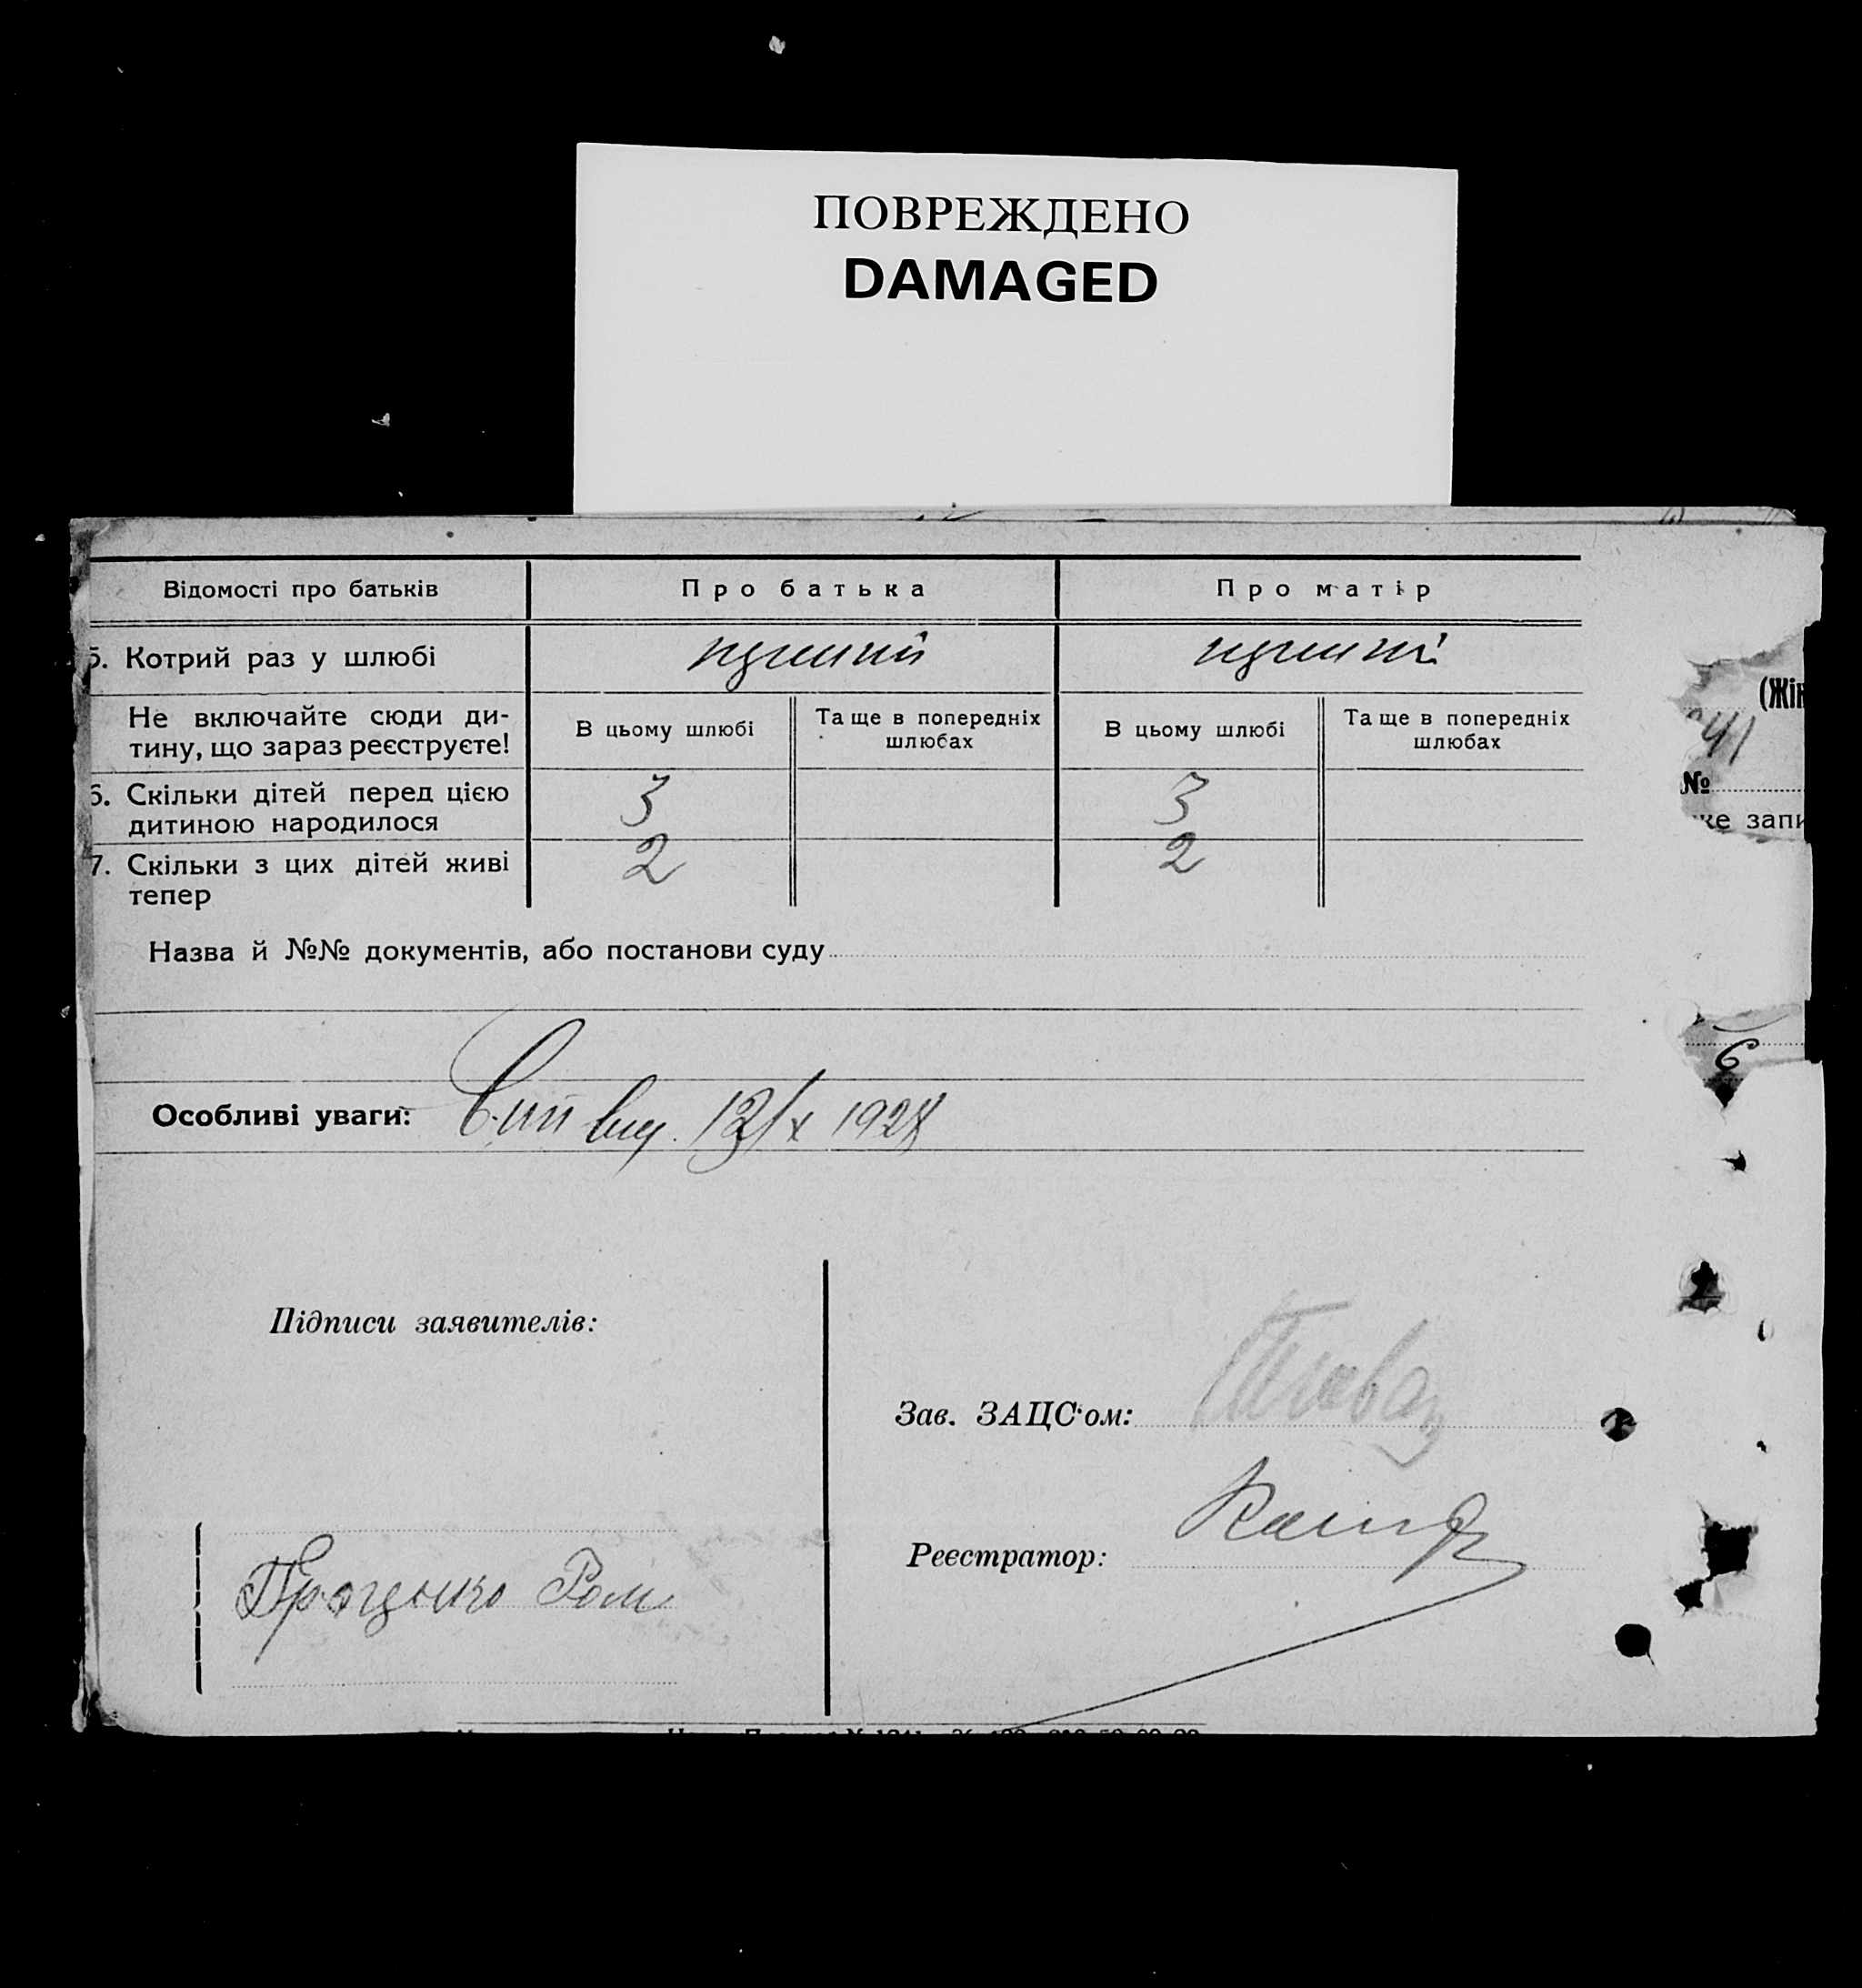 ПОВРЕЖДЕНО
DAMAGED
Відомості про батьків
Про батька
Про матір
5. Котрий раз у шлюбі
Не включайте сюди ди-
тину, що зараз реєструєте!
В цьому шлюбі
Та ще в попередніх
шлюбах
В цьому шлюбі
Та ще в попередніх
шлюбах
6. Скільки дітей перед цією
дитиною народилося
3
3
7. Скільки з цих дітей живі
тепер
2
2
Назва й №№ документів, або постанови суду
Особливі уваги:
вид. 12/X 1928
Підписи заявителів:
Зав. ЗАЦС'ом:
Реєстратор:
Проценко Ром
(Жін
41
№
же запи